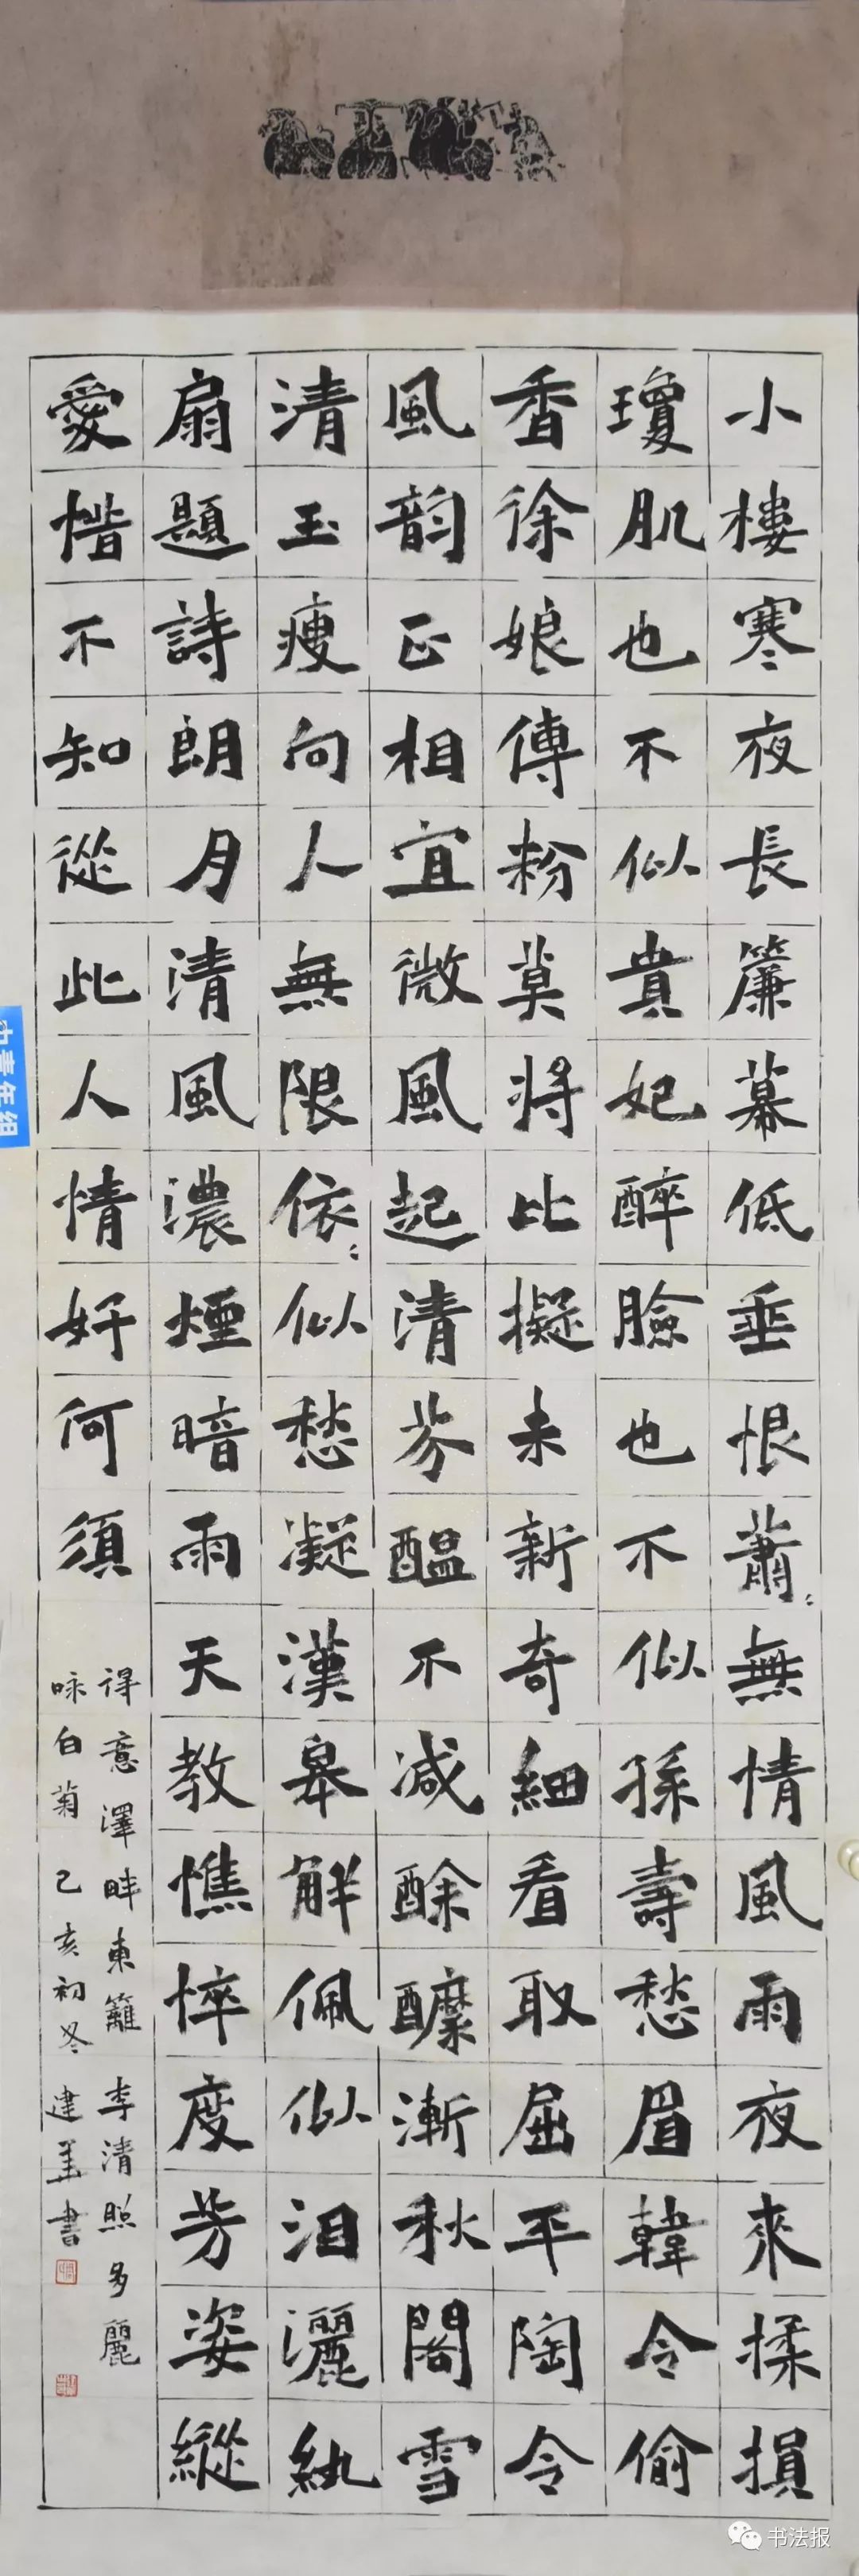 小樓寒夜長簾幕低垂恨蕭〻無情風雨夜來揉損
瓊肌也不似貴妃醉臉也不似孫壽愁眉韓令偷
香徐娘傅粉莫將比擬未新奇細看取屈平陶令
風韵正相宜微風起清芬醖不減酴醿漸秋閣雪
清玉瘦向人無限依〻似愁凝漢皋解佩似泪灑紈
扇題詩朗月清風濃煙暗雨天教憔悴度芳姿縱
愛惜不知從此人情好何須
得意澤畔東籬 李清照多麗
咏白菊 己亥初冬 建美書
中青年组
书法报